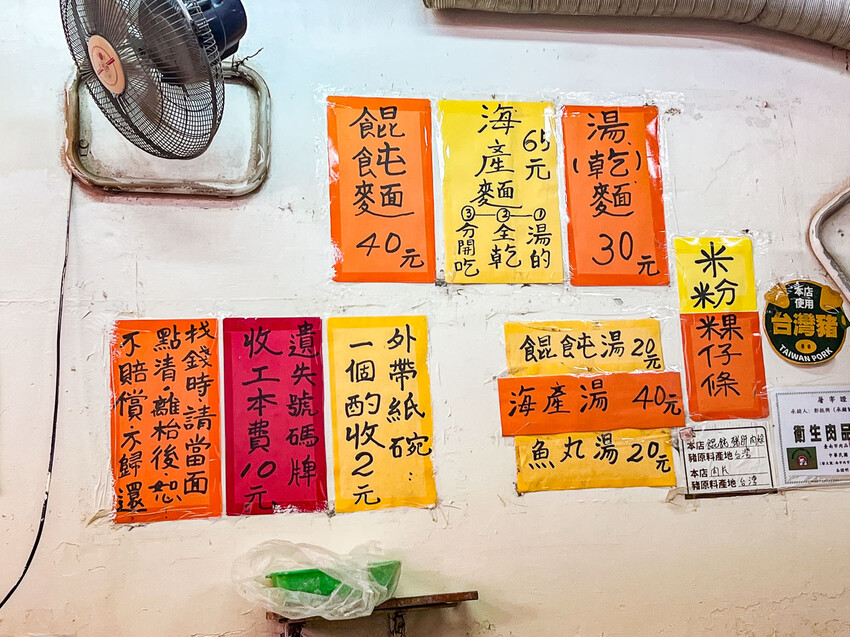 餛飩麵
40元
海產麵
65元
①湯的
②全乾
③分開吃
湯(乾)麵
30元
米粉
粿仔條
本店使用
台灣豬
TAIWAN PORK
找錢時請當面
點清離枱後恕
不賠償不歸還
遺失號碼牌
收工本費10元
外帶紙碗
一個酌收2元
餛飩湯20元
海產湯 40元
魚丸湯20元
豬原料產地台灣
本店肉片
豬原料產地台灣
衛生肉品